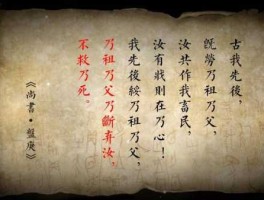 古我先後，
既勞乃祖乃父，
汝共作我畜民，
汝有戕則在乃心！
我先後綏乃祖乃父，
乃祖乃父乃斷弃汝，
不救乃死。
《尚書·盤庚》